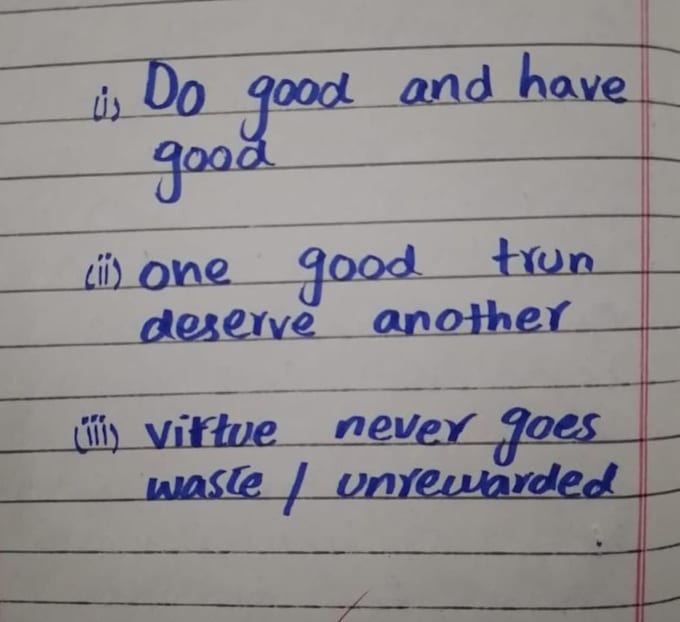 (i) Do good and have
good
(ii) one good trun
deserve another
(iii) virtue never goes
waste / unrewarded